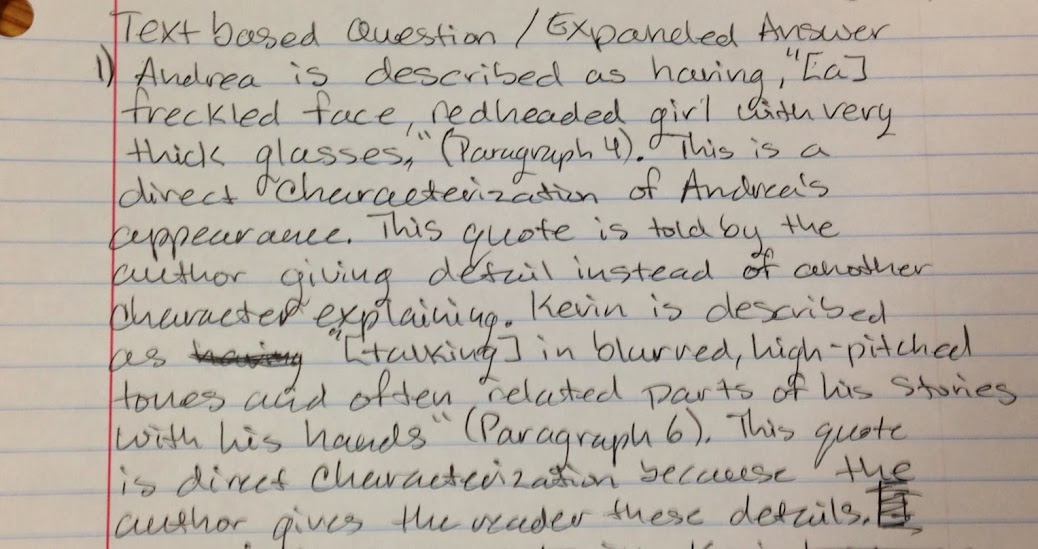 Text based Question / Expanded Answer
1) Andrea is described as having, "[a]
freckled face, redheaded girl with very
thick glasses," (Paragraph 4). This is a
direct characterization of Andrea's
appearance. This quote is told by the
author giving detail instead of another
character explaining. Kevin is described
as having "[talking] in blurred, high-pitched
tones and often related parts of his stories
with his hands" (Paragraph 6). This quote
is direct characterization because the
author gives the reader these details.